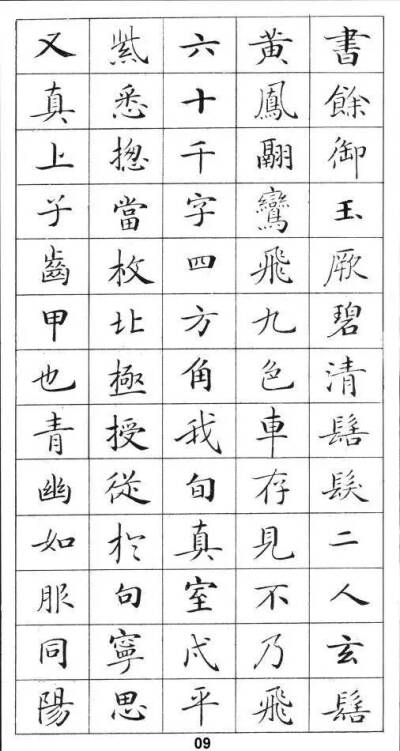 書餘御玉厥碧清髻髮二人玄髻
黃鳳翮鸞飛九色車存見不乃飛
六十千字四方角我旬真室代平
紫悉揔當枚北極授從於句寧思
又真上子齒甲也青幽如服同陽
09